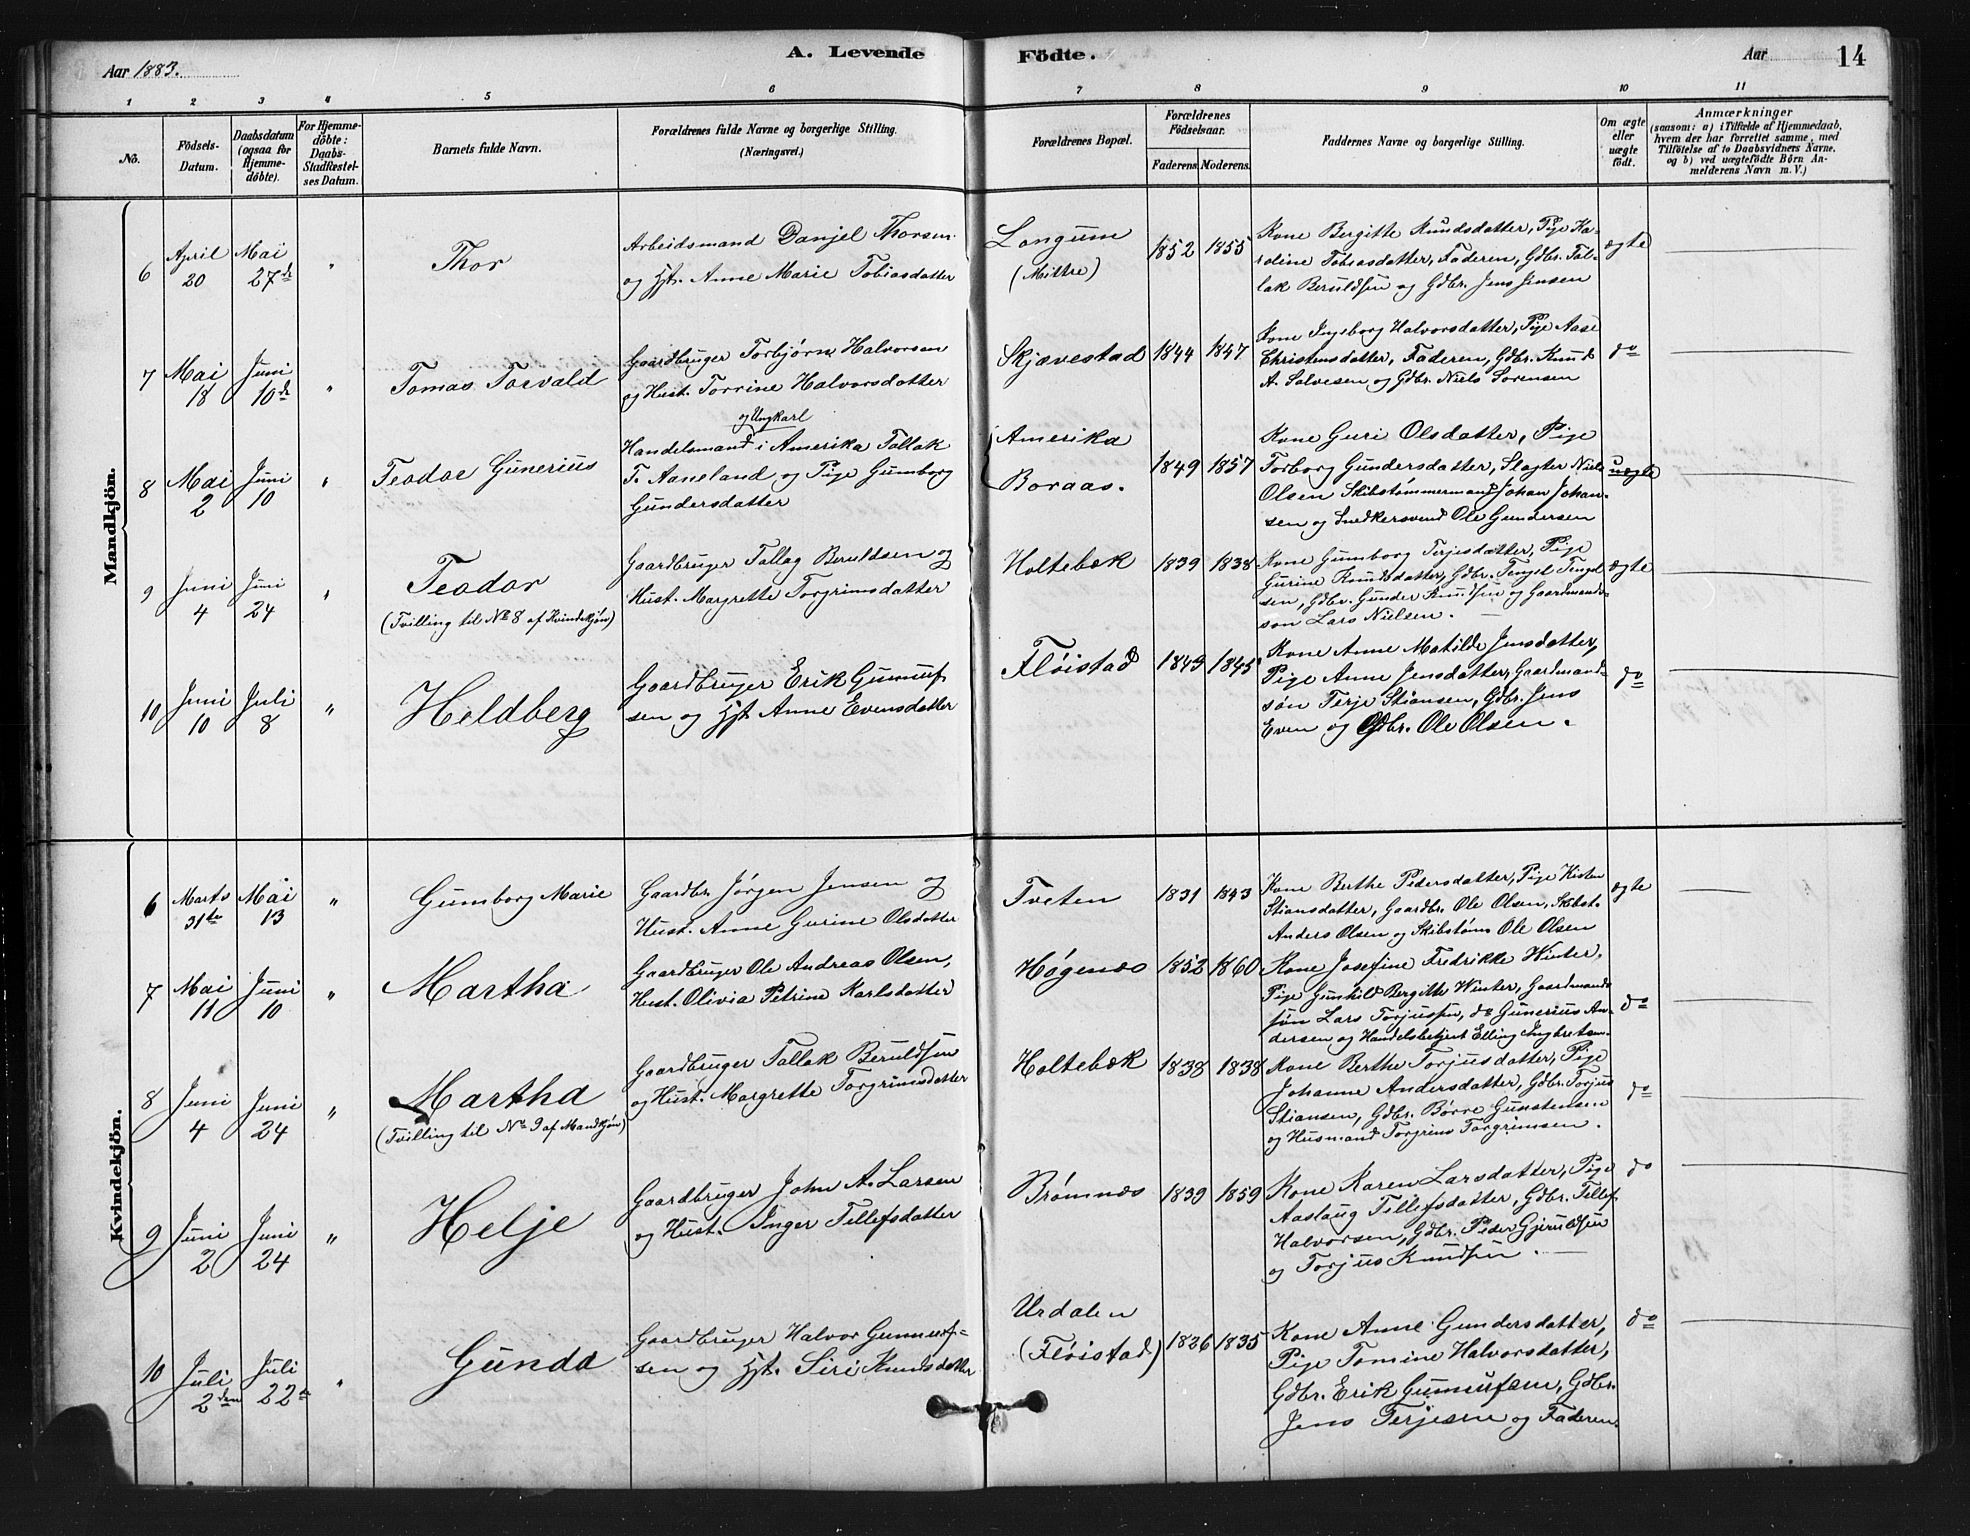 Aar 1883.
A. Levende Födte.
Aar
14
1 2 3 4 5 6 7 8 9 10 11
No.
Födsels-Datum.
Daabsdatum (ogsaa for Hjemme-döbte).
For Hjemme-döbte: Daabs-Stadfæstel-ses Datum.
Barnets fulde Navn.
Forældrenes fulde Navne og borgerlige Stilling.
(Næringsvei.)
Forældrenes Bopæl.
Forældrenes Födselsaar.
Faderens. Moderens.
Faddernes Navne og borgerlige Stilling.
Om ægte eller uægte födt.
Anmærkninger
(saasom: a) i Tilfælde af Hjemmedaab,
hvem der har forrettet samme, med
Tilföielse af to Daabsvidners Navne,
og b) ved uægtefödte Börn An-
melderens Navn m. V.)
Mandkjön.
6
April 20
Mai 27de
"
Thor
Arbeidsmand Danjel Thorsen
og Hst. Anne Marie Tobiasdatter
Longum
(Mittre)
1852 1855
Kone Bergitte Knudsdatter, Pige Ka-
roline Tobiasdatter, Faderen, Gdbr. Tal-
lak Beruldsen og Gdbr. Jens Jensen
ægte
7
Mai 18
Juni 10de
"
Tomas Torvald
Gaardbruger Torbjørn Halvorsen
og Hust. Torrine Halvorsdatter
Skjævestad
1844 1847
Kone Ingeborg Halvorsdatter, Pige Aase
Christensdatter, Faderen, Gdbr. Knud
A. Salvesen og Gdbr. Niels Sorensen
do
8
Mai 2
Juni 10
"
Teodor Gunerius
og Ungkarl
Handelsmand i Amerika Tallak
T. Aaneland og Pige Gumborg
Gundersdatter
Amerika
Boraas.
1849 1857
Kone Guri Olsdatter, Pige
Torborg Gundersdatter, Slagter Niels
Olsen Skibstømmermand Johan Johan-
sen og Snedkersvend Ole Gundersen
uægte
9
Juni 4
Juni 24
"
Teodor
(Tvilling til No 8 af Kvindekjøn)
Gaardbruger Tallag Beruldsen og
Hust. Margrette Torgrimsdatter
Holtebæk
1839 1838
Kone Gumborg Terjesdatter, Pige
Gurine Knudsdatter, Gdbr. Tengel Tengel
sen, Gdbr. Gunder Knudsen og Gaardmands-
søn Lars Nielsen.
ægte
10
Juni 10
Juli 8
"
Heldberg
Gaardbruger Erik Gunnuf-
sen og Hst. Anne Evensdatter
Fløistad
1849 1845
Kone Anne Matilde Jensdatter,
Pige Anne Jensdatter, Gaardmand-
søn Terje Stiansen, Gdbr. Jens
Even og Gdbr. Ole Olsen.
do
Kvindekjön.
6
Marts 31te
Mai 13
"
Gumborg Marie
Gaardbr. Jørgen Jensen og
Hust. Anne Gurine Olsdatter
Tveten
1831 1843
Kone Berthe Pedersdatter, Pige Kisten
Stiansdatter, Gaardbr. Ole Olsen, Skibst.
Anders Olsen og Skibstøm Ole Olsen
ægte
7
Mai 11
Juni 10
"
Martha
Gaardbruger Ole Andreas Olsen,
Hust. Olivia Petrine Karlsdatter
Høgenæs
1852 1860
Kone Josefine Fredrikke Winter,
Pige Gunhild Bergitte Winter, Gaardmands
søn Lars Torjussen, do Gunerius An-
dersen og Handelsbetjent Elling Ingbretsen
do
8
Juni 4
Juni 24
"
Martha
(Tvilling til No 9 af Mandkjøn)
Gaardbruger Tallak Beruldsen
og Hust. Margrette Torgrimsdatter
Holtebæk
1838 1838
Kone Berthe Torjusdatter, Pige
Johanne Andersdatter, Gdbr. Torjus
Stiansen, Gdbr. Børre Gunstensen
og Husmand Torgrim Torgrimsen.
do
9
Juni 2
Juni 24
"
Helje
Gaardbruger John A. Larsen
og Hust. Inger Tellefsdatter
Brømnæs
1839 1859
Kone Karen Larsdatter, Pige
Aaslaug Tellefsdatter, Gdbr. Tellef
Halvorsen, Gdbr. Peder Gjeruldsen
og Torjus Knudsen.
do
10
Juli 2den
Juli 22de
"
Gunda
Gaardbruger Halvor Gunnuf-
sen og Hst. Siri Knudsdatter
Urdalen
(Fløistad)
1826 1835
Kone Anne Gundersdatter,
Pige Tomine Halvorsdatter,
Gdbr. Erik Gunnufsen, Gdbr.
Jens Terjesen og Faderen.
do